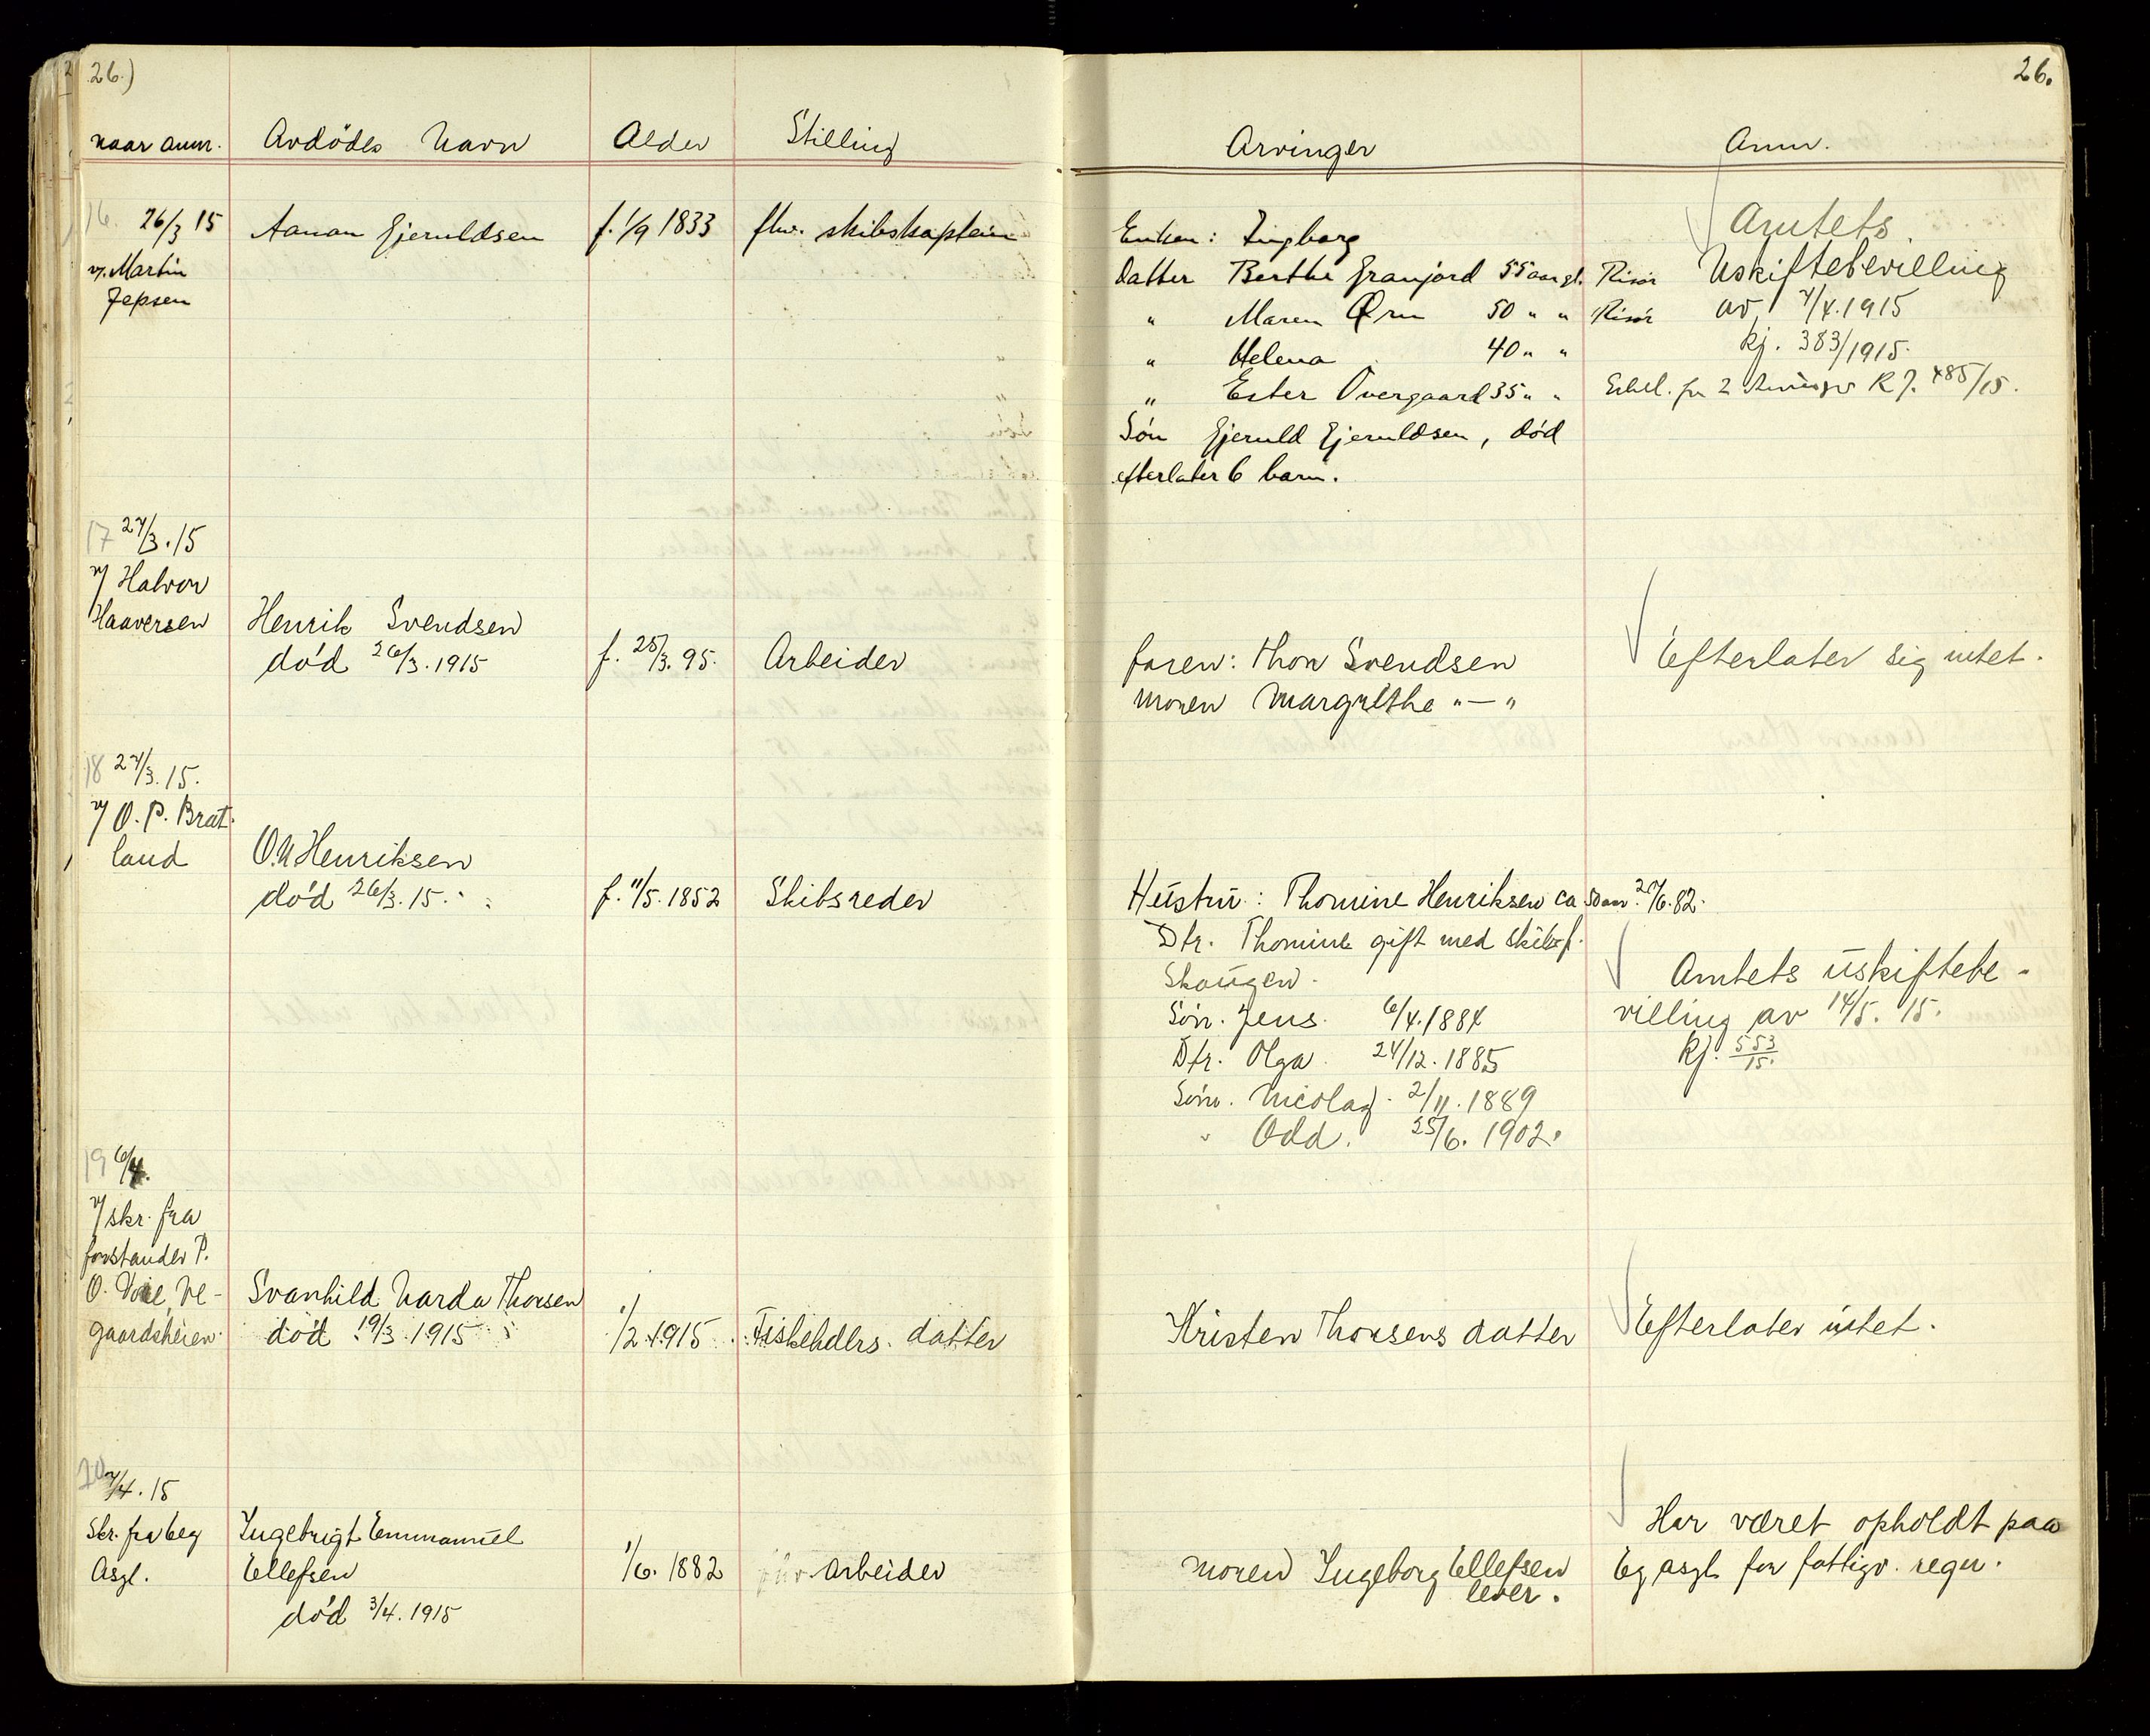 26.)
26.
naar anm. Avdödes Navn Alder Stilling Arvinger Anm.
16. 26/3 15 Aanon Gjeruldsen f. 1/9 1833 fhv. skibskaptein Enken: Ingborg Amtets
v. Martin Datter Berthe Granjord 55 aar gl. Risör Uskiftebevilling
Jepsen " Maren Ørn 50 " " Risör av 7/4.1915
" Helena 40 " " kj. 383/1915.
" Ester Overgaard 35 " " R J. 485/15.
Sön Gjeruld Gjeruldsen, död
efterlater 6 barn.
17 27/3.15
v/ Halvor
Haaversen Henrik Svendsen
död 26/3.1915 f. 25/3.95. Arbeider faren: Thor Svendsen Efterlater sig intet.
moren Margrethe "—"
18 27/3.15.
v/ O. P. Brat-
land O.N Henriksen
död 26/3.15. f. 11/5.1852 Skibsreder Hustru: Thomine Henriksen ca 50 aar 27/6.82.
Dtr. Thomine gift med skibsf.
Skougen. Amtets uskiftebe-
Sön. Jens. 6/4.1884 villing av 14/5. 15.
Dtr. Olga. 24/12.1885 Kj. 553/15.
Sön. Nicolay. 2/11.1889
" Odd. 25/6.1902.
19 6/4.
v/ skr. fra
forstander P.
O. Voie, Ve- Svanhild Narda Thorsen
gaardsheien. död 19/3.1915 1/2.1915 Fiskehdlrs. datter Kristen Thorsens datter Efterlater intet.
20 7/4.15
Skr. fra Eeg Ingebrigt Emmanuel Har været opholdt paa
Asyl. Ellefsen 1/6.1882 arbeider moren Ingeborg Ellefsen Eg asyl for fattigv. regn.
lever.
död 3/4.1915